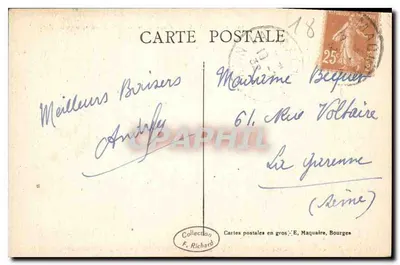 18
CARTE POSTALE
25c
Meilleurs Baisers
Madame
61, Rue Voltaire
La Garenne
(Seine)
CPAPHIL
Collection
F. Richard
Cartes postales en gros: E, Maquaire, Bourges